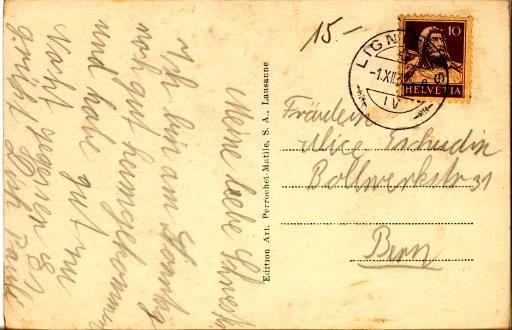 15.-
LIGN
-1.XII
IV
10
HELVETIA
Edition Art. Perrochet-Matile, S. A., Lausanne
Fräulein
Alice Tschudin
Bollwerkstr 31
Bern
Meine liebe Schwester
Ich bin am Sonntag
noch gut heimgekommen
und habe gut
Nacht
grüsst Dich